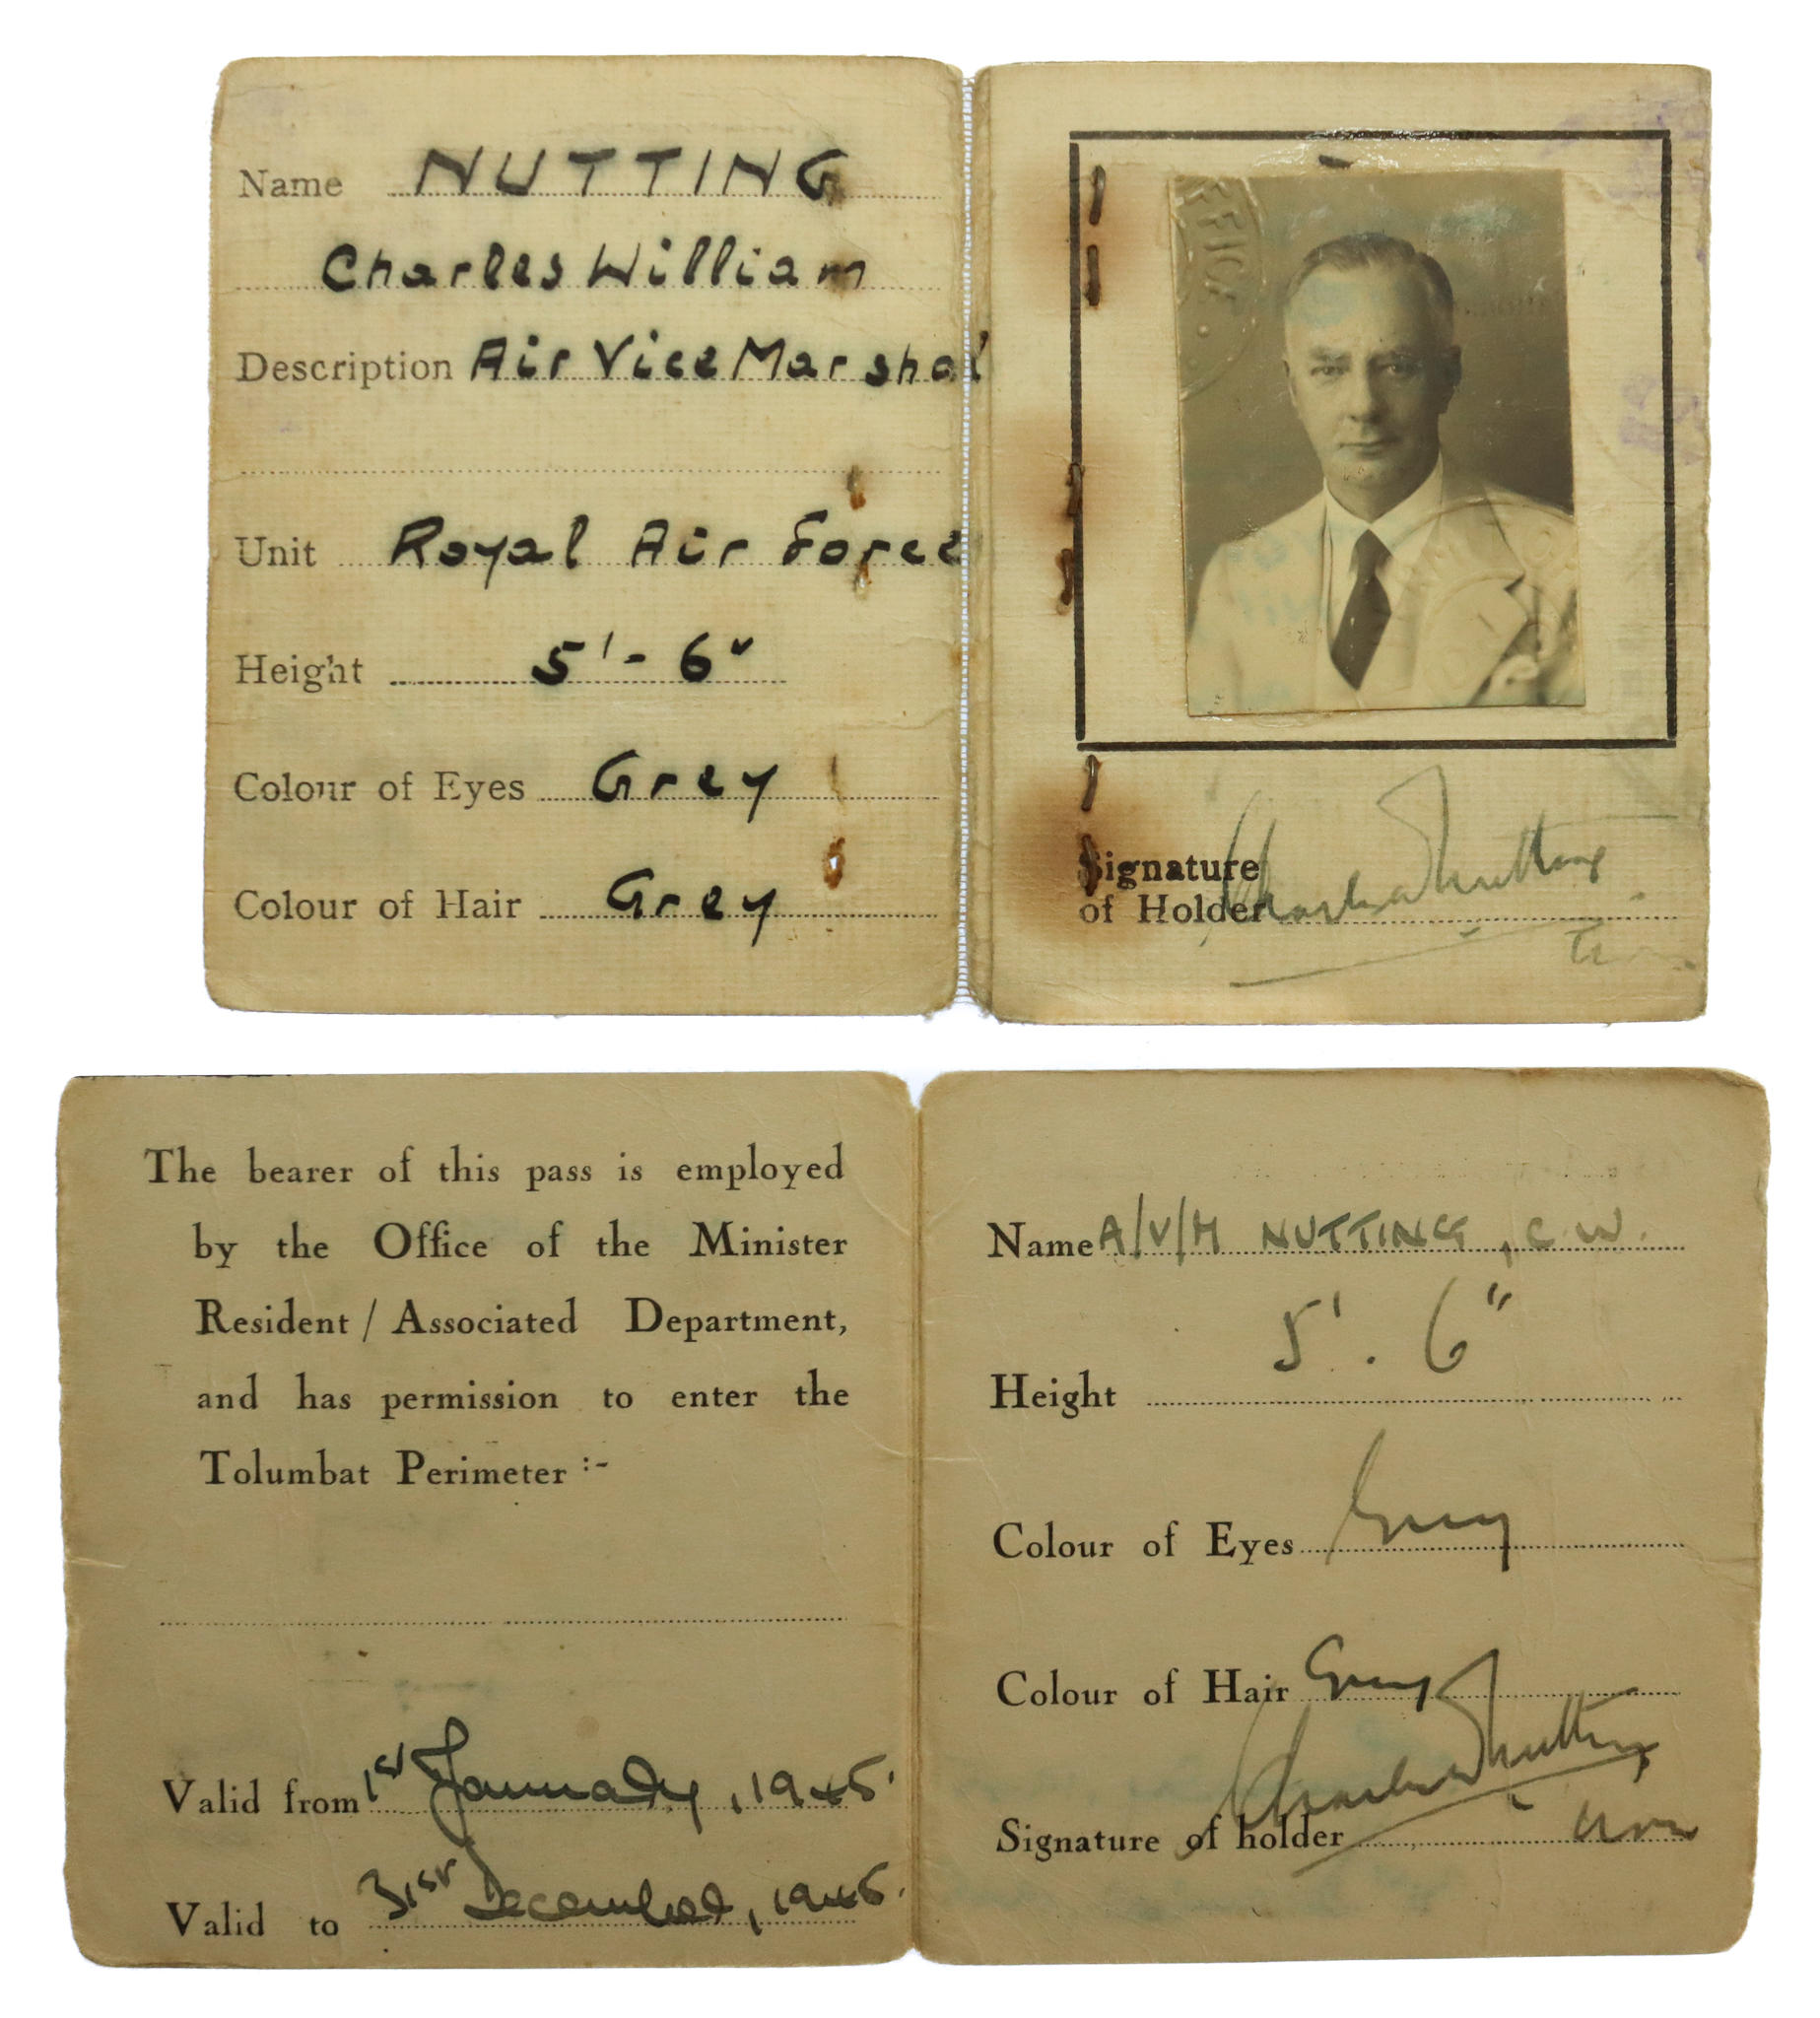 Name NUTTING
Charles William
Description Air Vice Marshal
Unit Royal Air Force
Height 5'-6"
Colour of Eyes Grey
Colour of Hair Grey
FFICA
Signature
of Holder Charles W Nutting
The bearer of this pass is employed
by the Office of the Minister
Resident / Associated Department,
and has permission to enter the
Tolumbat Perimeter :-
Valid from 1st January, 1945.
Valid to 31st December, 1945.
Name A/V/M NUTTING, C. W.
Height 5'. 6"
Colour of Eyes Grey
Colour of Hair Grey
Signature of holder Charles W Nutting